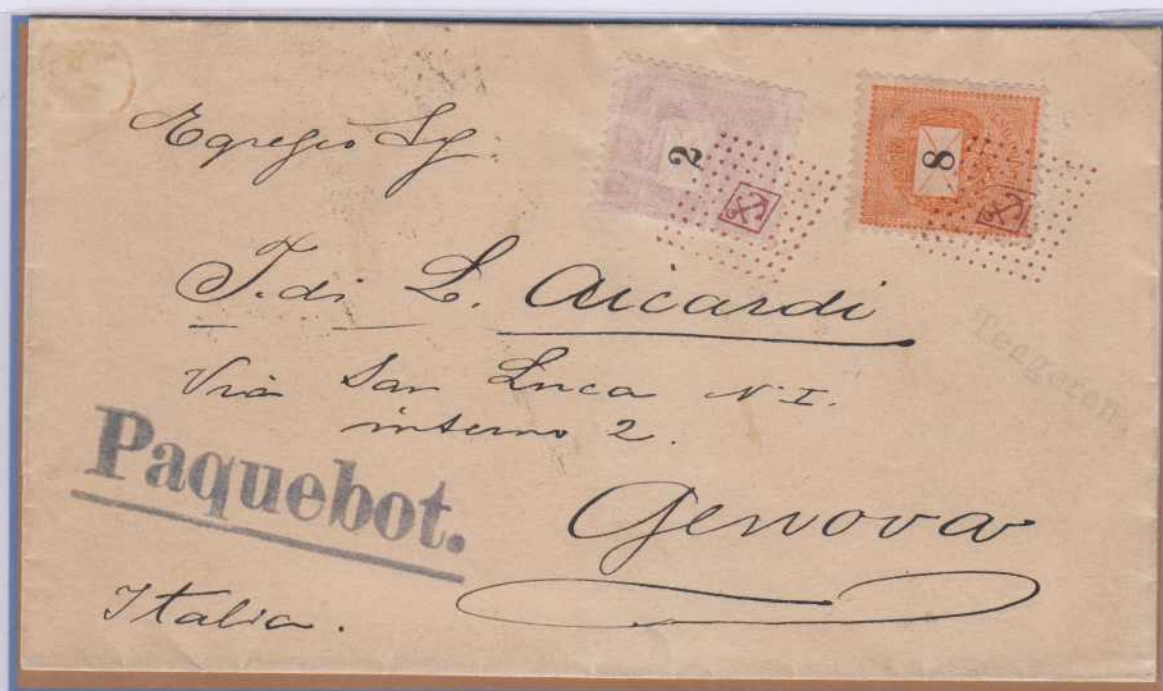 Egregio Sg.
2
8
J. di L. Aicardi
Via San Luca N. I.
interno 2.
Paquebot.
Genova
Italia.